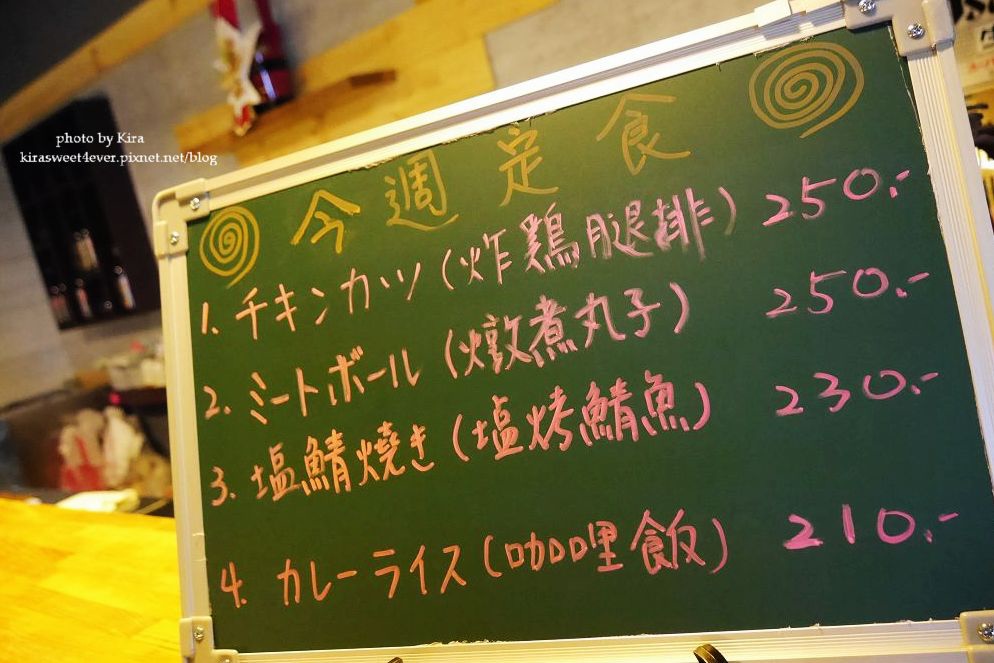 photo by Kira
kirasweet4ever.pixnet.net/blog
今週定食
1. チキンカツ (炸鶏腿排) 250.-
2. ミートボール (燉煮丸子) 250.-
3. 塩鯖燒き (塩烤鯖魚) 230.-
4. カレーライス (咖哩飯) 210.-